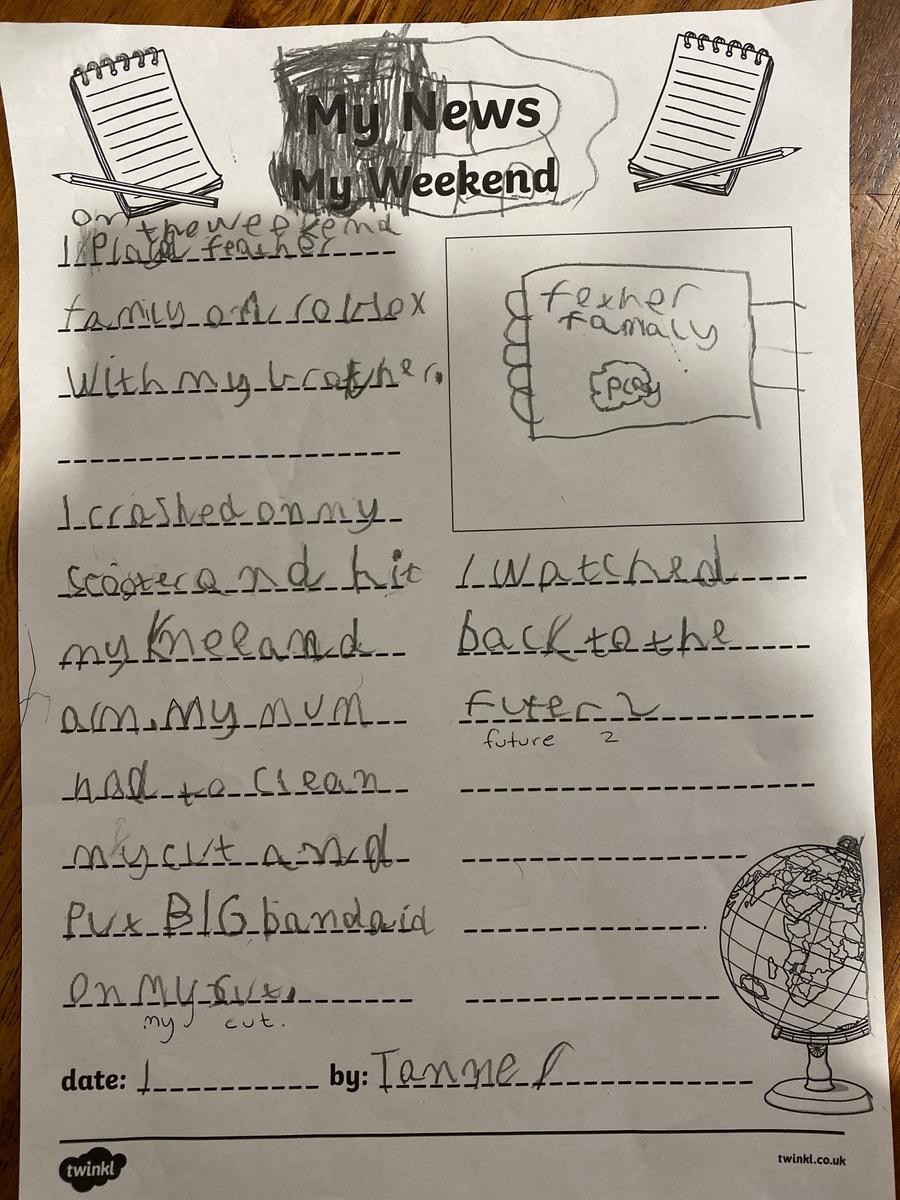 My News
My Weekend
on the weekend
I Playd feather
family on roblox
With my brother.
fexher
famaly
Play
I crashed on my
scooter and hit
my Knee and
arm. My mum
had to clean
my cut and
Put BIG bandaid
On My cut.
my cut.
I Watched
back to the
Futer 2
future 2
date: 1
by: Tanner
twinkl
twinkl.co.uk